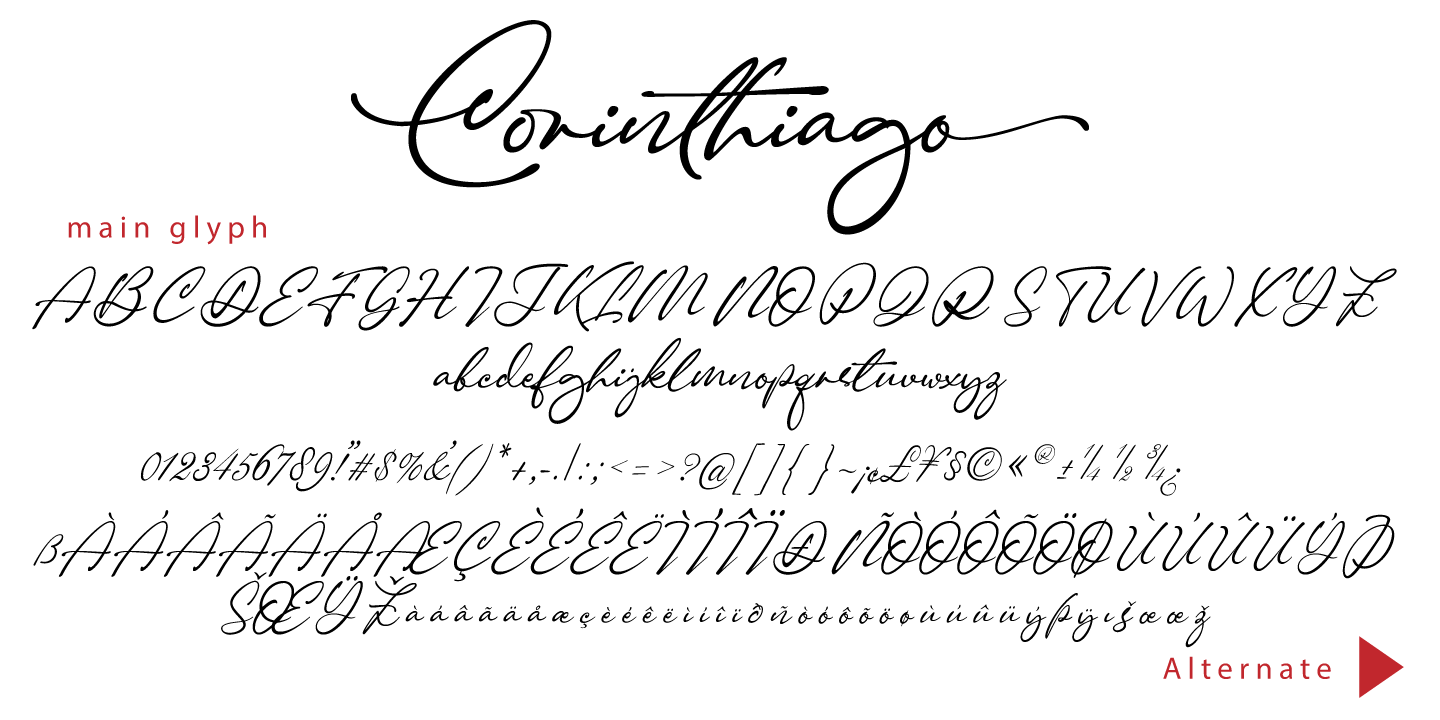 Corinthiago
main glyph
ABCDEFGHIJKLMNOPQRSTUVWXYZ
abcdefghijklmnopqrstuvwxyz
0123456789!"#$%&'()*+,-./:;<=>?@[]{}~¡¢£¥§©«®±¼½¾¿
ßÀÁÂÃÄÅÆÇÈÉÊËÌÍÎÏÐÑÒÓÔÕÖØÙÚÛÜÝÞ
ŠŒŸŽàáâãäåæçèéêëìíîïðñòóôõöøùúûüýþÿışœœž
Alternate